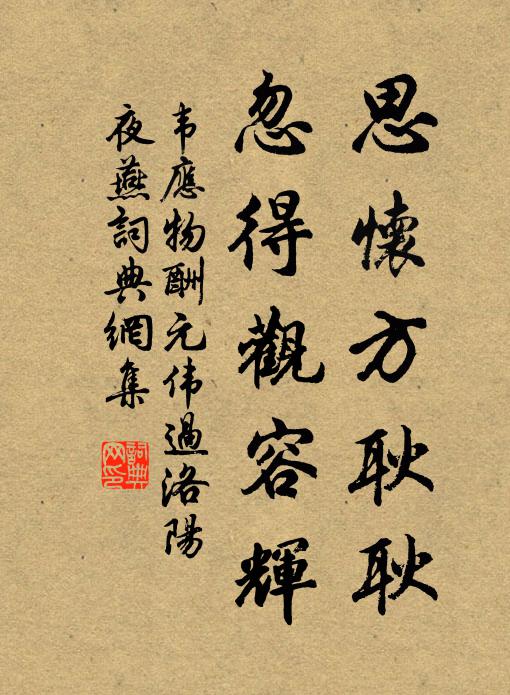 思懷方耿耿
忽得觀容輝
韦應物酬元伟過洛陽
夜燕詞典網集
詞典網印